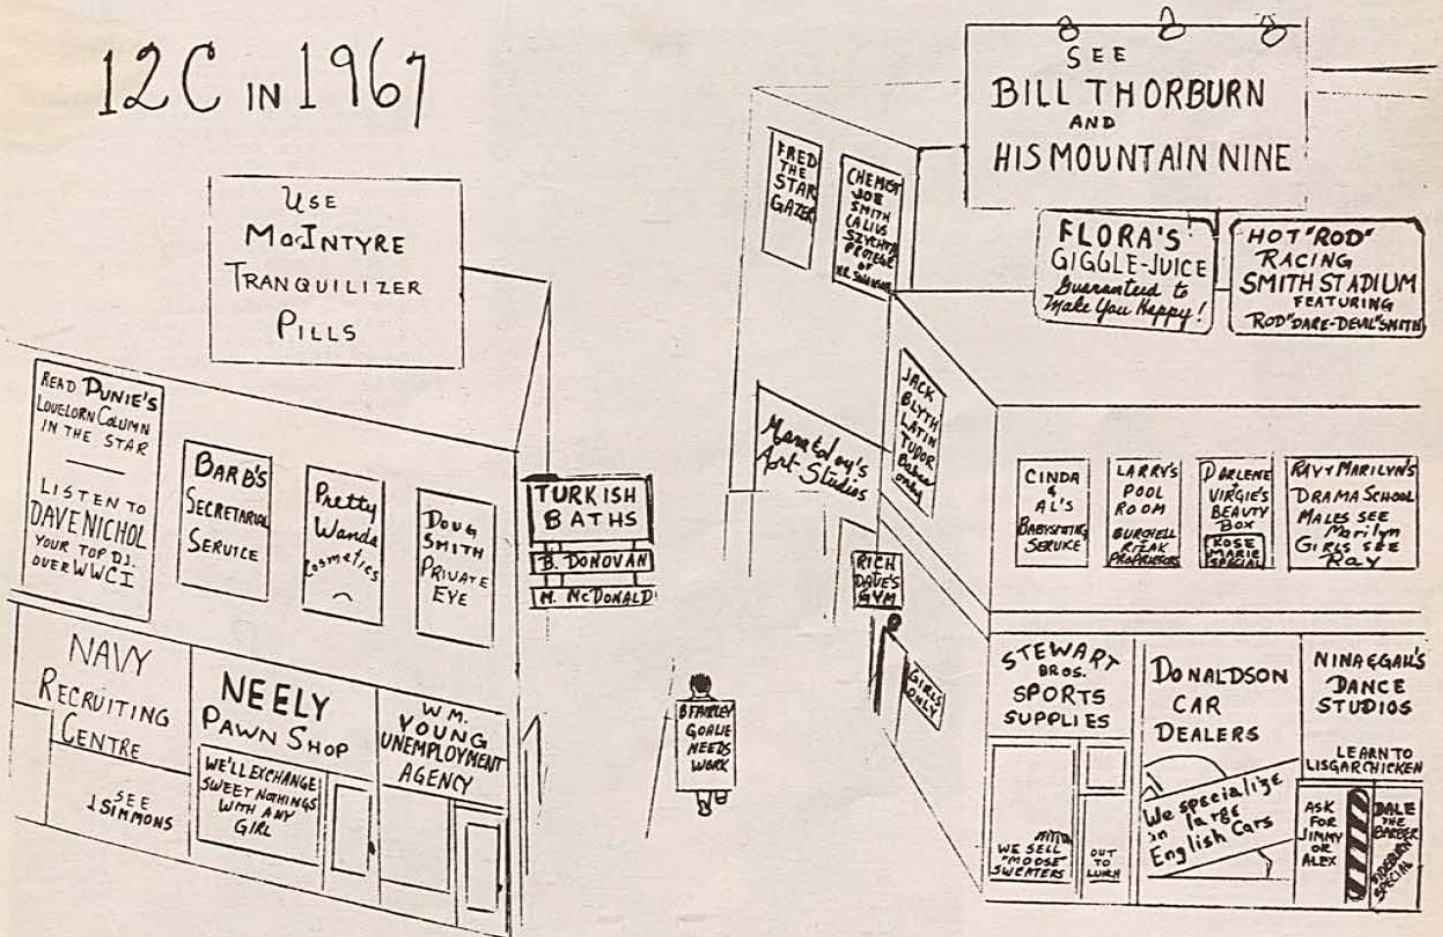 12C IN 1967
USE
MCINTYRE
TRANQUILIZER
PILLS
READ PUNIE'S
LOVELORN COLUMN
IN THE STAR
LISTEN TO
DAVE NICHOL
YOUR TOP D.J.
OVER WWCI
BARB'S
SECRETARIAL
SERVICE
Pretty
Wanda
Cosmetics
DOUG
SMITH
PRIVATE
EYE
TURKISH
BATHS
B. DONOVAN
M. MCDONALD
NAVY
RECRUITING
CENTRE
SEE
J SIMMONS
NEELY
PAWN SHOP
WE'LL EXCHANGE
SWEET NOTHINGS
WITH ANY
GIRL
WM.
YOUNG
UNEMPLOYMENT
AGENCY
B FAIRLEY
GOALIE
NEEDS
WORK
FRED
THE
STAR
GAZER
CHEMIST
JOE
SMITH
(ALIUS
SZYCHTA
PROTEGE
OF
MR.
SEE
BILL THORBURN
AND
HIS MOUNTAIN NINE
FLORA'S
GIGGLE-JUICE
Guaranteed to
Make You Happy!
HOT "ROD"
RACING
SMITH STADIUM
FEATURING
ROD "DARE-DEVIL" SMITH
Art Studios
JACK
BLYTH
LATIN
TUDOR
Babes
only
RICH
DAVE'S
GYM
GIRLS
ONLY
CINDA
&
AL'S
BABYSITTING
SERVICE
LARRY'S
POOL
ROOM
BURCHELL
RIZAK
PROPRIETORS
DARLENE
+
VIRGIE'S
BEAUTY
BOX
ROSE
MARIE
SPECIAL
RAY + MARILYN'S
DRAMA SCHOOL
MALES SEE
Marilyn
GIRLS SEE
Ray
STEWART
BROS.
SPORTS
SUPPLIES
WE SELL
"MOOSE"
SWEATERS
OUT
TO
LUNCH
DONALDSON
CAR
DEALERS
We specialize
in large
English Cars
NINA EGAN'S
DANCE
STUDIOS
LEARN TO
LISGAR CHICKEN
ASK
FOR
JIMMY
OR
ALEX
DALE
THE
BARBER
SIDEBURN
SPECIAL